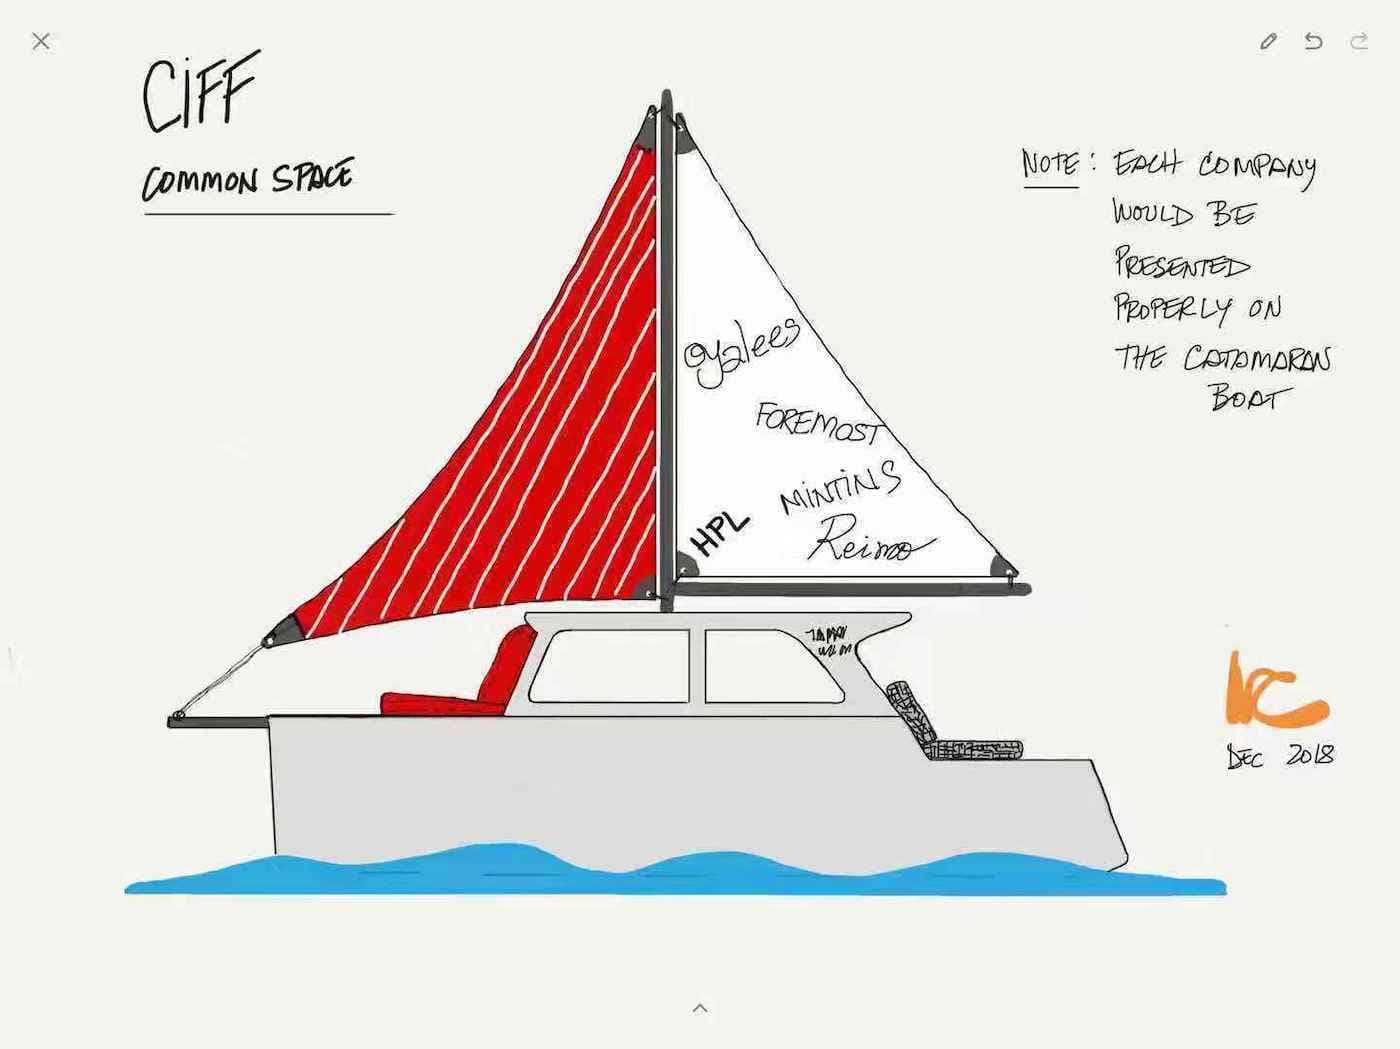 CIFF
COMMON SPACE
NOTE: EACH COMPANY
WOULD BE
PRESENTED
PROPERLY ON
THE CATAMARAN
BOAT
oyalees
FOREMOST
MINTINS
HPL
Reimo
DEC 2018